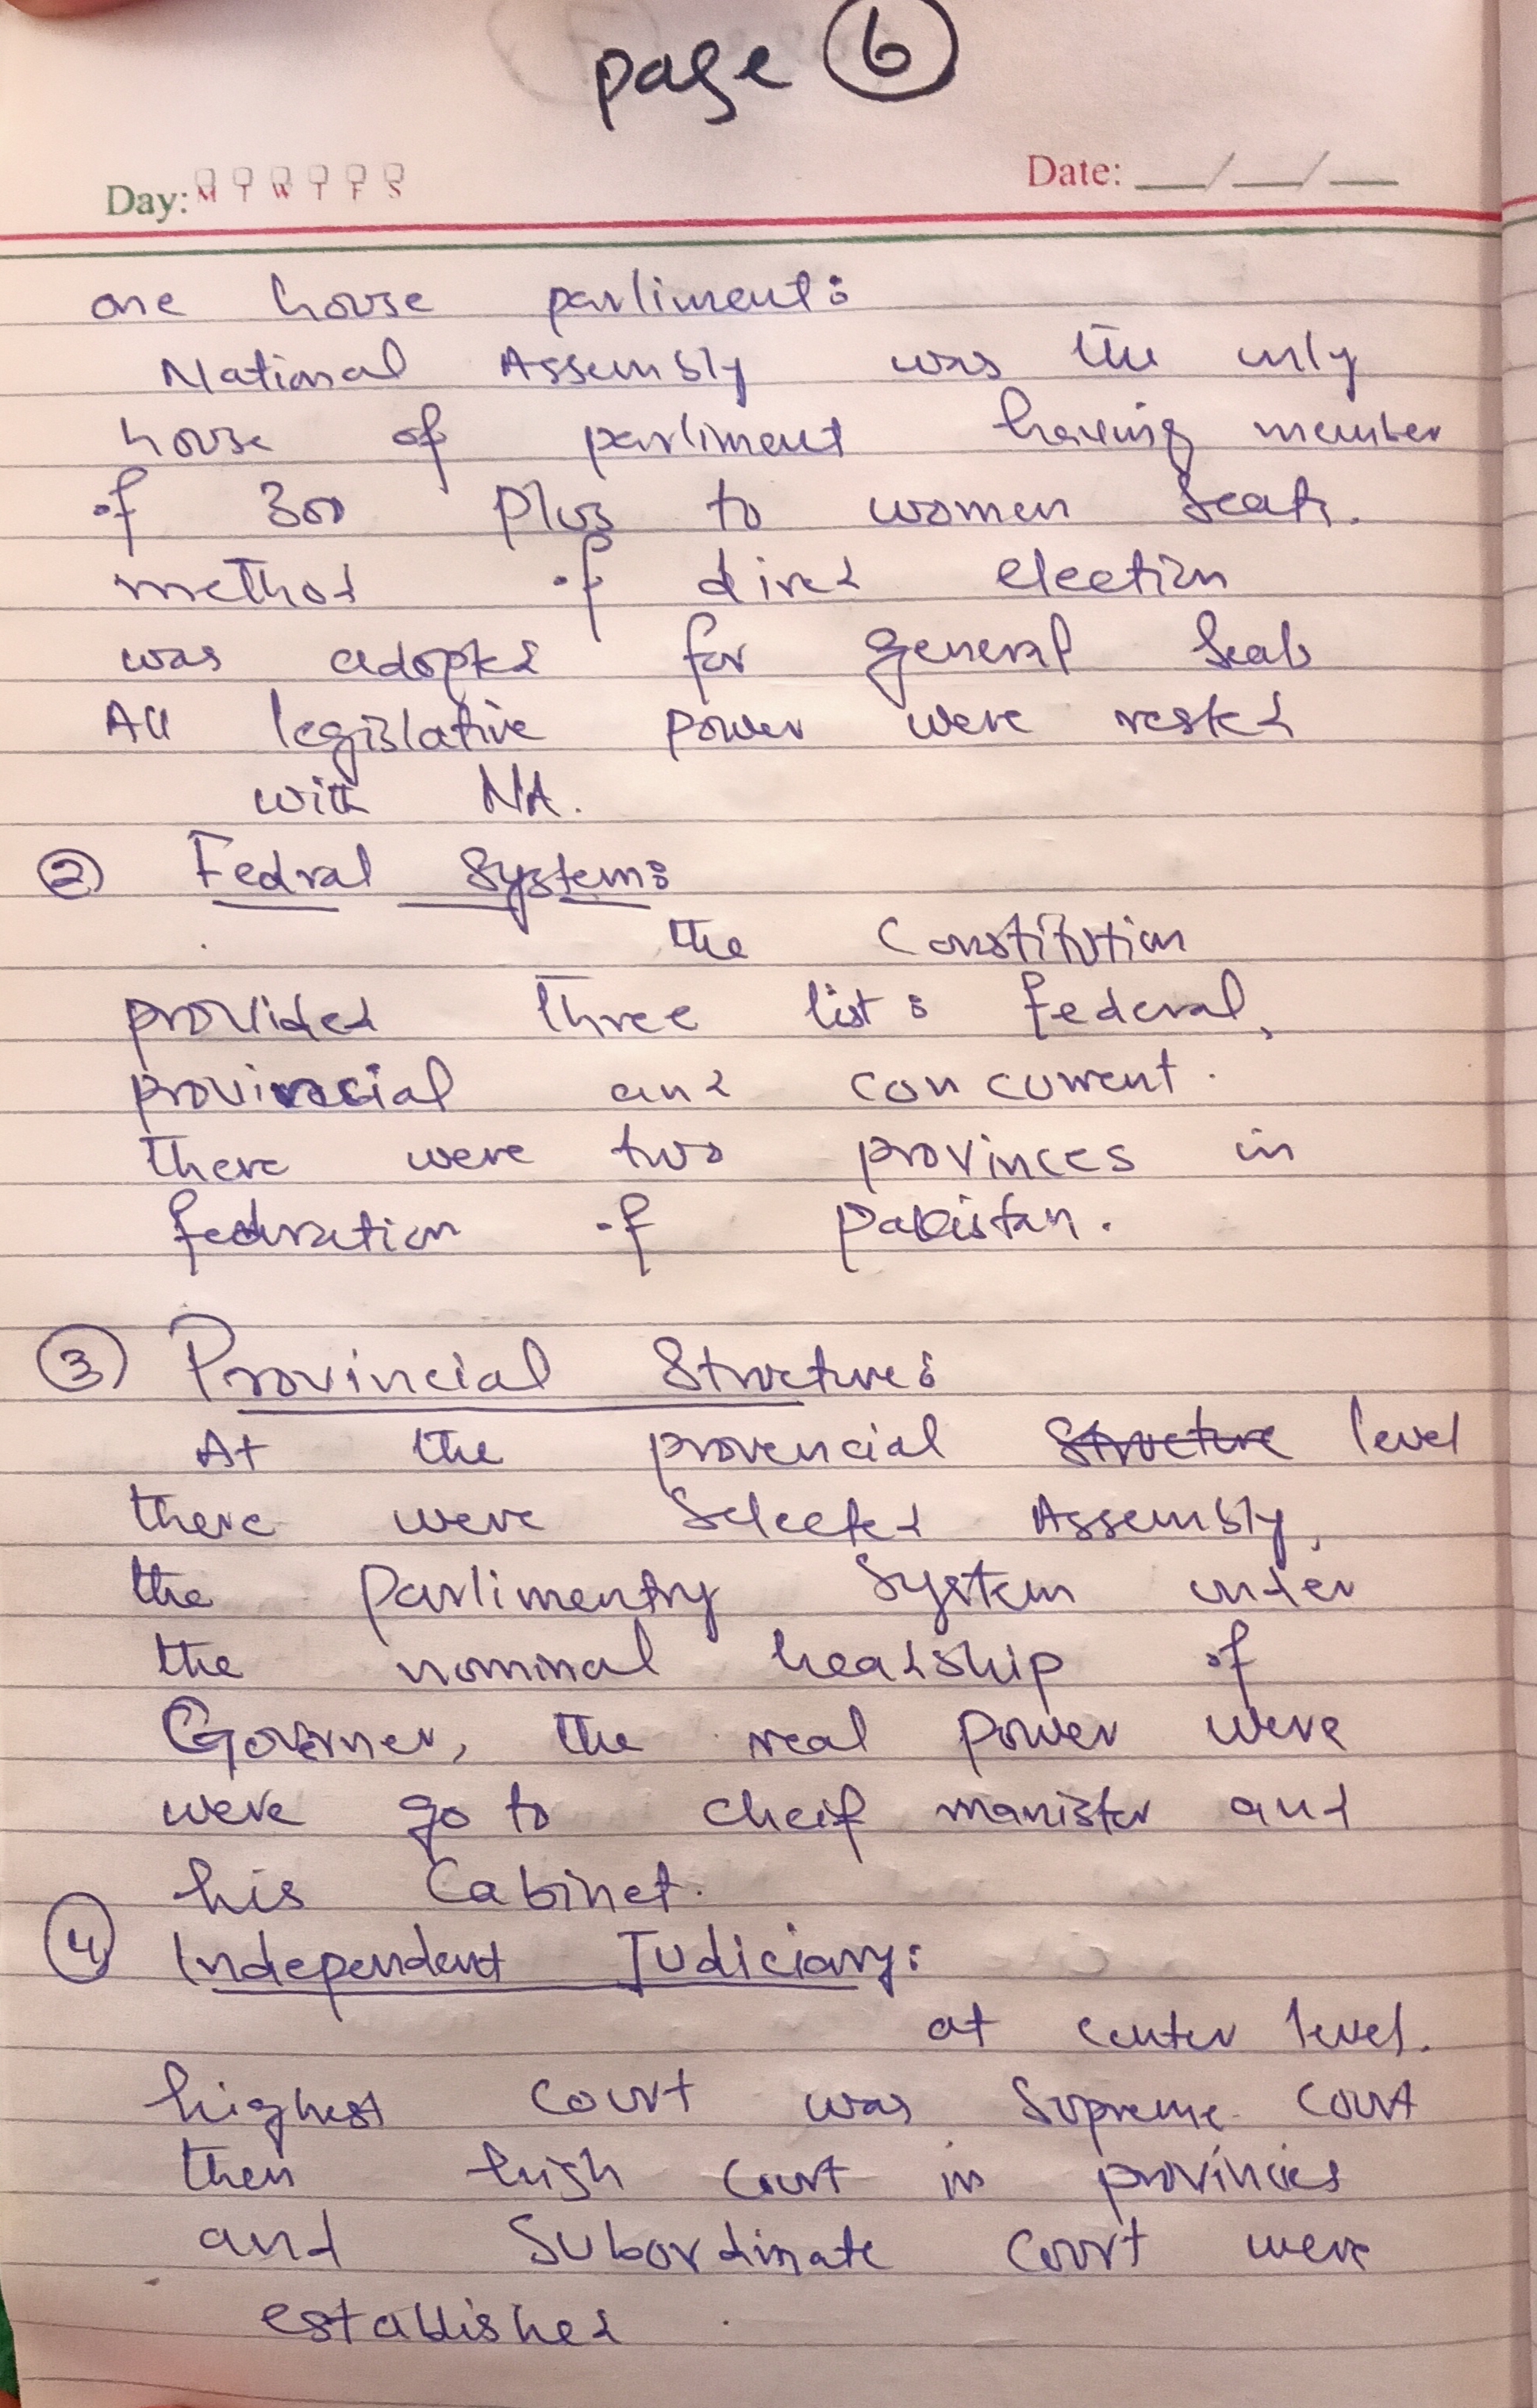 page 6
Day: M T W T F S
Date: __/__/__
one house parliment:
National Assembly was the only
house of parliment having member
of 300 plus to women seats.
method of direct election
was adopted for general seats
All legislative power were rested
with NA.
② Fedral System:
the Constitution
provided three list: federal,
provinvcial and concurrent.
there were two provinces in
fedration of Pakistan.
③ Provincial Structure:
At the provencial structure level
there were Selected Assembly,
the Parlimentry System under
the nominal headship of
Governer, the real power were
were go to cheif manister and
his Cabinet.
④ Independent Judiciary:
at center level.
highest court was Supreme Court
then high court in provincies
and Subordinate Court were
established